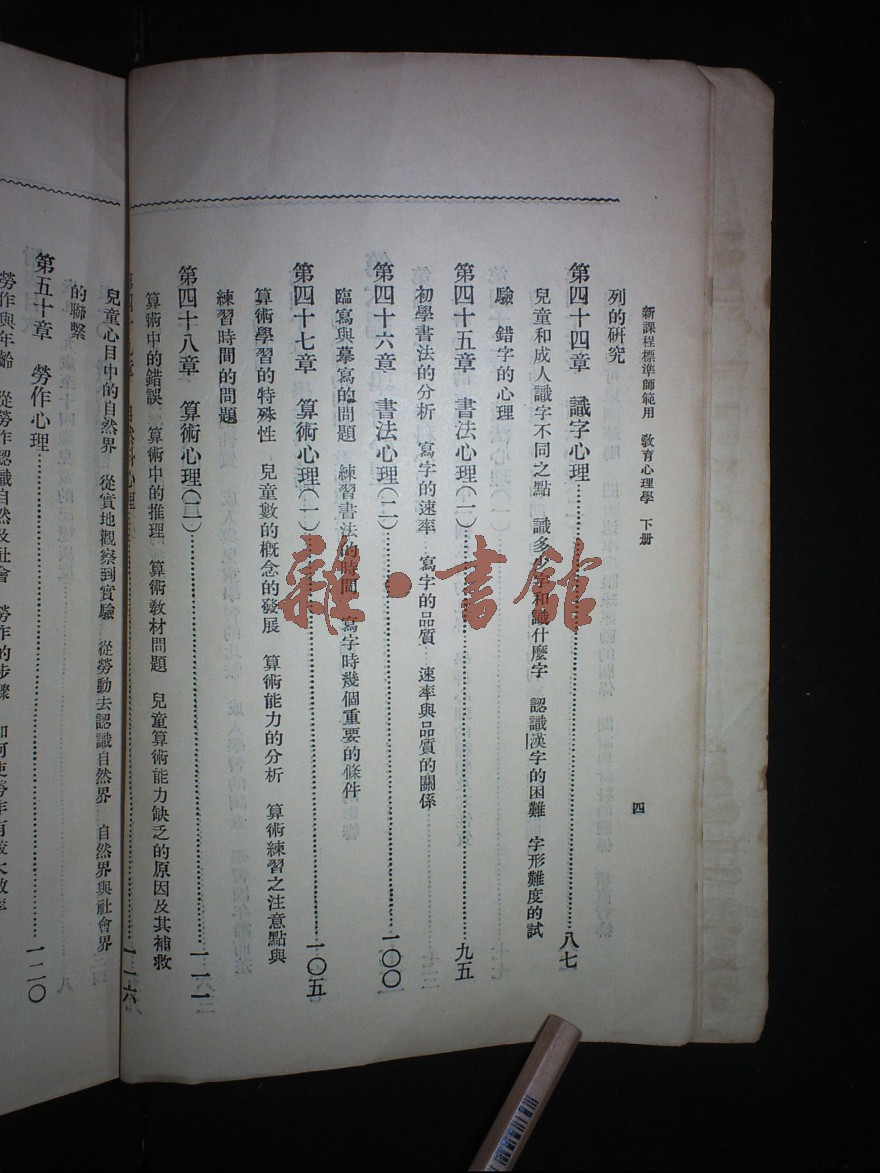 新課程標準師範用 教育心理學 下册
四
列的研究
第四十四章 識字心理……八七
兒童和成人識字不同之點 識多少字和識什麼字 認識漢字的困難 字形難度的試
驗 錯字的心理
第四十五章 書法心理(一)……九五
初學書法的分析 寫字的速率 寫字的品質 速率與品質的關係
第四十六章 書法心理(二)……一〇〇
臨寫與摹寫的問題 練習書法的時間 寫字時幾個重要的條件
第四十七章 算術心理(一)……一〇五
算術學習的特殊性 兒童數的概念的發展 算術能力的分析 算術練習之注意點與
練習時間的問題
第四十八章 算術心理(二)……一一一
算術中的錯誤 算術中的推理 算術教材問題 兒童算術能力缺乏的原因及其補救
兒童心目中的自然界 從實地觀察到實驗 從勞動去認識自然界 自然界與社會界
的聯繫
第五十章 勞作心理……一二〇
勞作與年齡 從勞作認識自然及社會 勞作的步驟 如何使勞作有較大效率
雜·書館